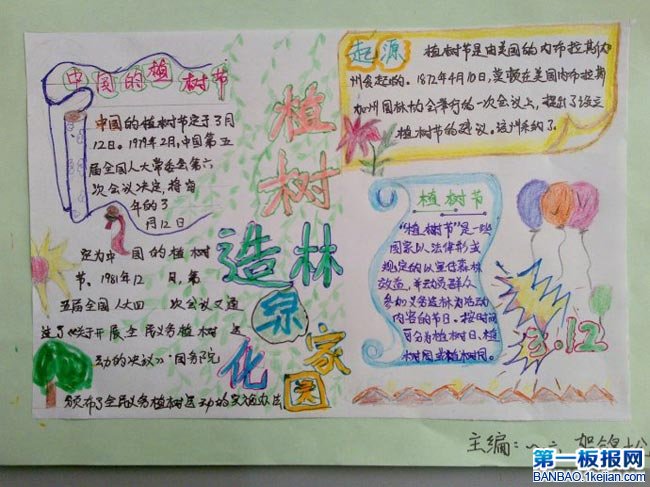 中国的植树节
中国的植树节定于3月
12日。1979年2月,中国第五
届全国人大常委会第六
次会议决定,将每
年的3
月12日
定为中国的植树
节、1981年12月,第
五届全国人大四次会议又通
过了《关于开展全民义务植树运
动的决议》。国务院
颁布了全民义务植树运动的实施办法
植树
造林
绿
化
家
园
起源
植树节是由美国的内布拉斯
州发起的。1872年4月10日,莫顿在美国内布拉斯
加州园林协会举行的一次会议上,提出了设立
植树节的建议。该州采纳了
植树节
"植树节"是一些
国家以法律形式
规定的以宣传森林
效益,并动员群众
参加义务造林为活动
内容的节日。按时间
可分为植树日、植
树周或植树月。
3.12
主编:
第一板报网
BANBAO.1kejian.com